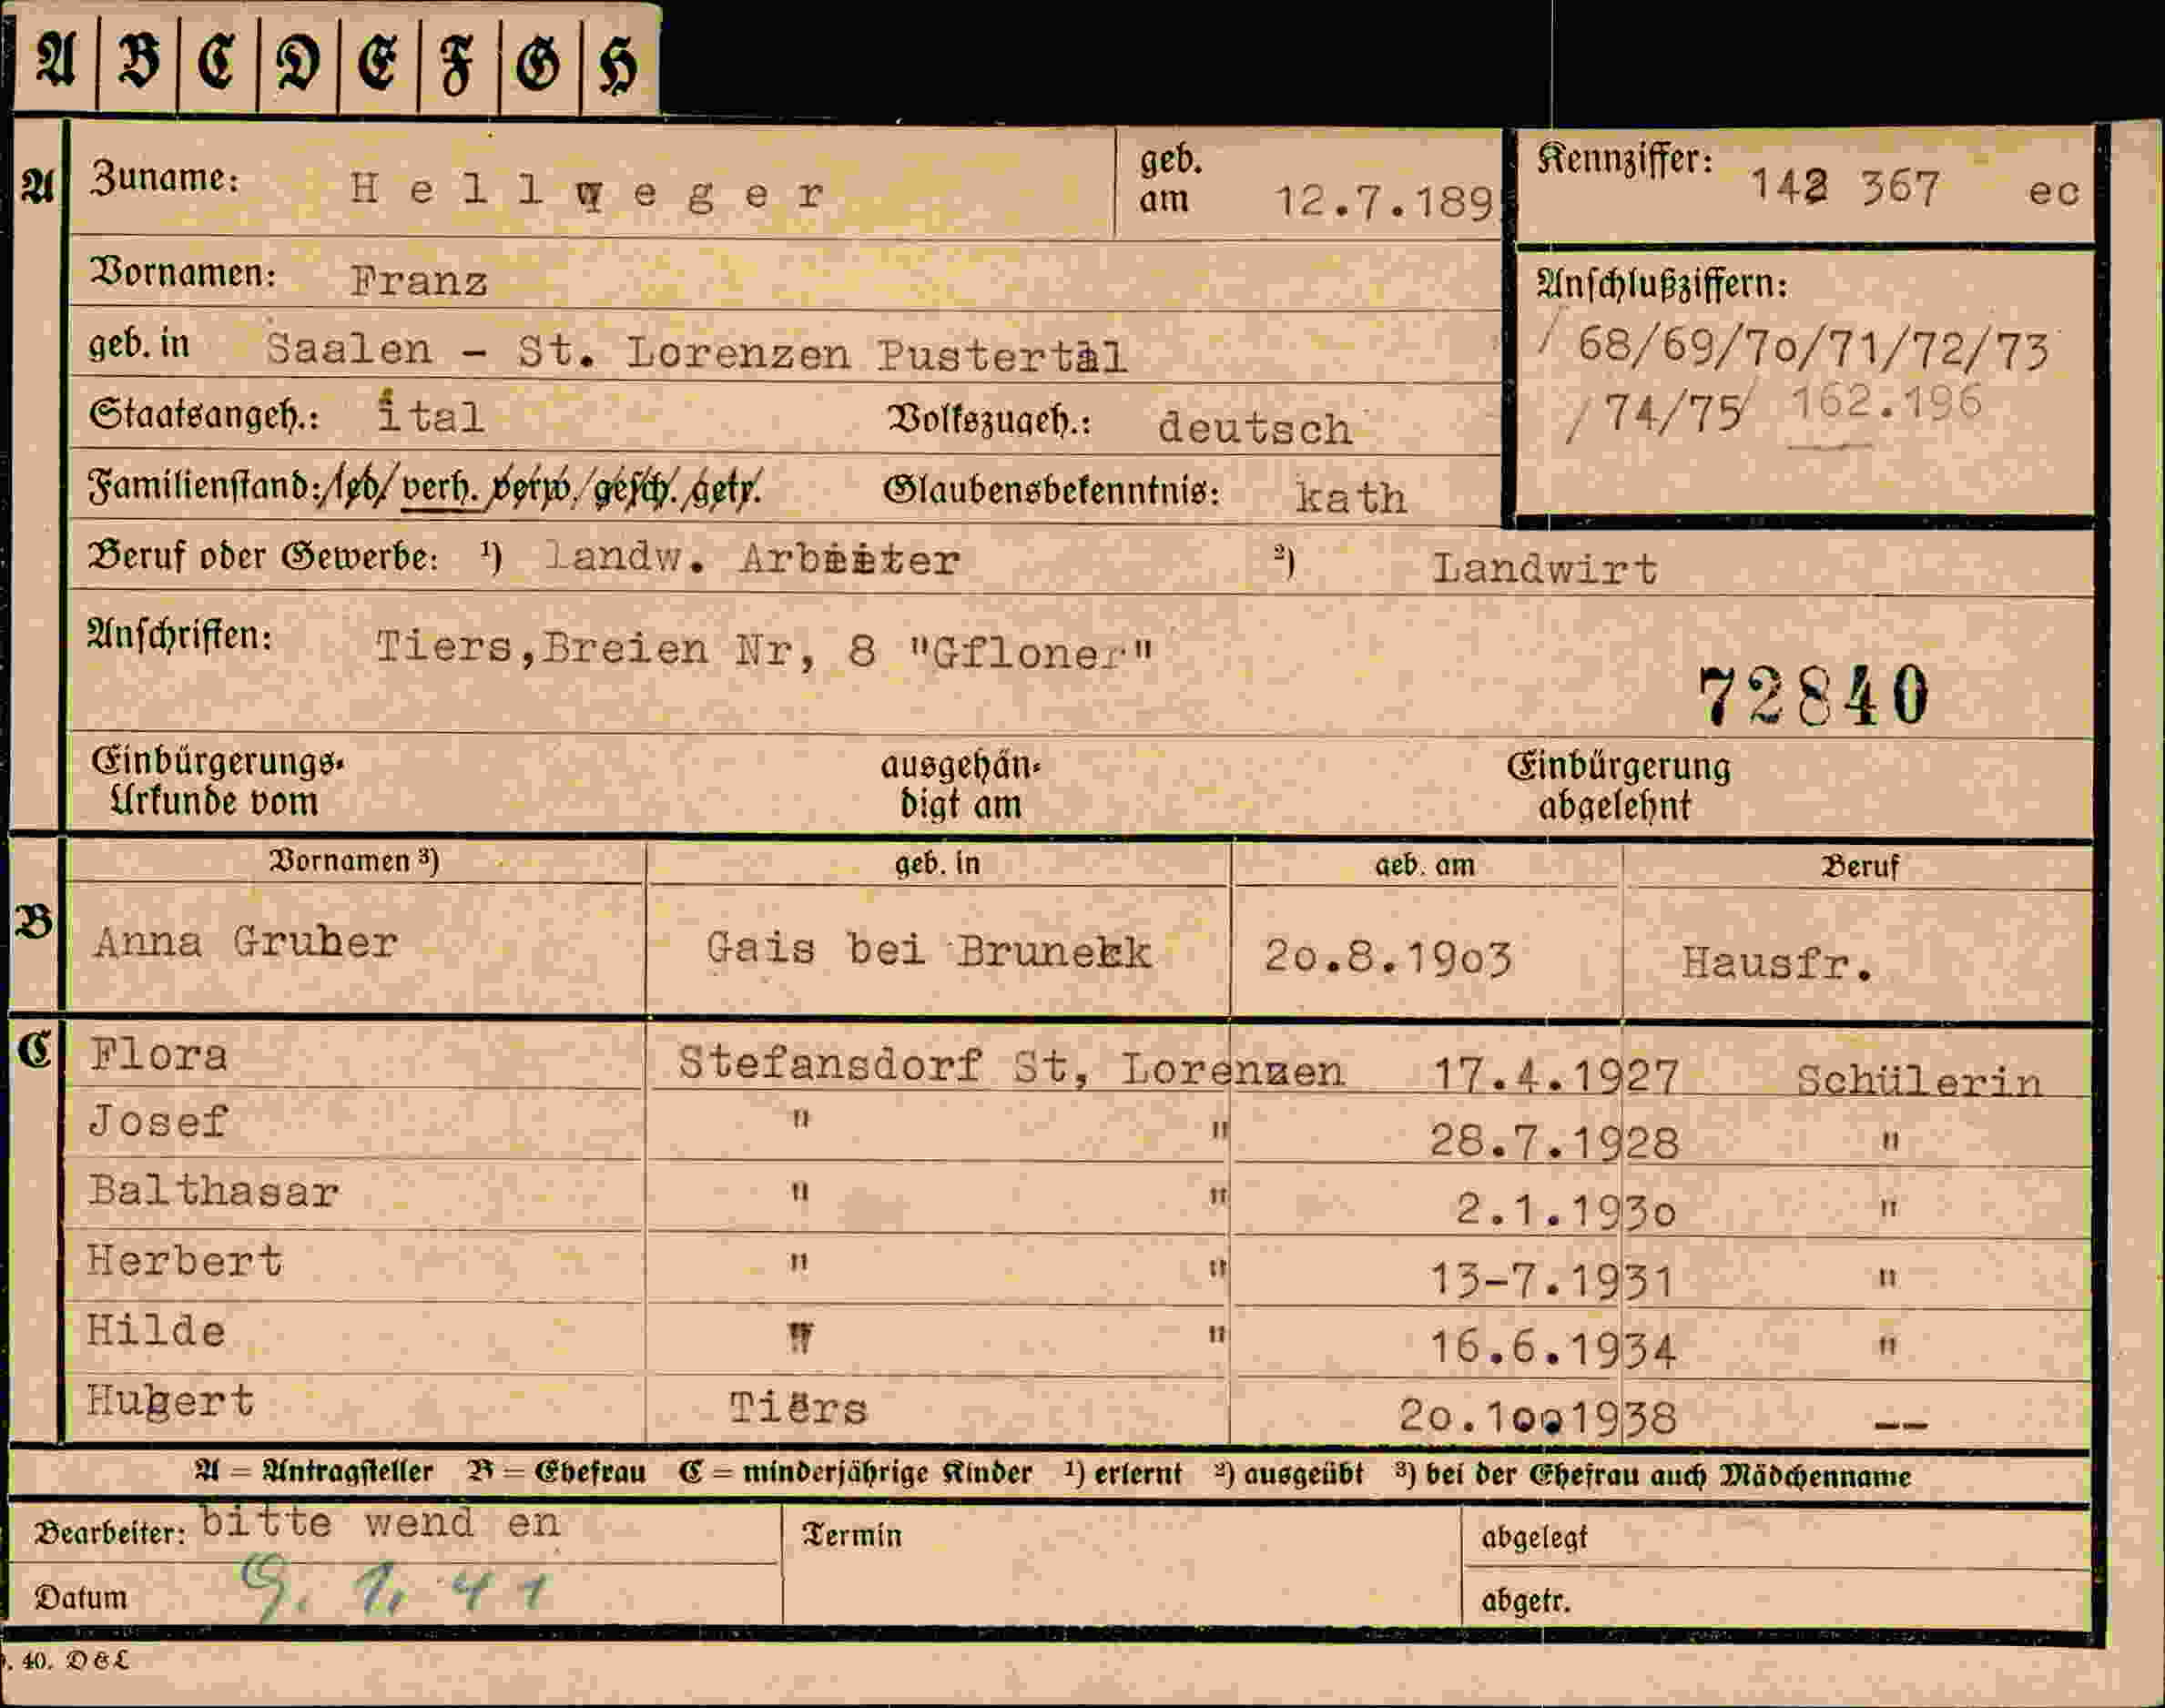 A B C D E F G H
A Zuname: Hellweger geb. am 12.7.189 Kennziffer: 142 367 ec
Vornamen: Franz
Anschlußziffern:
geb. in Saalen - St. Lorenzen Pustertal / 68/69/7o/71/72/73
Staatsangeh.: ital Volkszugeh.: deutsch / 74/75/ 162.196
Familienstand: /led/ verh. verw./gesch./getr. Glaubensbekenntnis: kath
Beruf oder Gewerbe: ¹) landw. Arbeiter ²) Landwirt
Anschriften: Tiers,Breien Nr, 8 "Gfloner"
72840
Einbürgerungs- ausgehän- Einbürgerung
Urkunde vom digt am abgelehnt
Vornamen ³) geb. in geb. am Beruf
B Anna Gruber Gais bei Brunekk 2o.8.19o3 Hausfr.
C Flora Stefansdorf St, Lorenzen 17.4.1927 Schülerin
Josef " " 28.7.1928 "
Balthasar " " 2.1.193o "
Herbert " " 13-7.1931 "
Hilde " " 16.6.1934 "
Hubert Tiers 2o.1o.1938 --
A = Antragsteller B = Ehefrau C = minderjährige Kinder ¹) erlernt ²) ausgeübt ³) bei der Ehefrau auch Mädchenname
Bearbeiter: bitte wend en Termin abgelegt
Datum 9. 1. 41 abgetr.
. 40. D & L